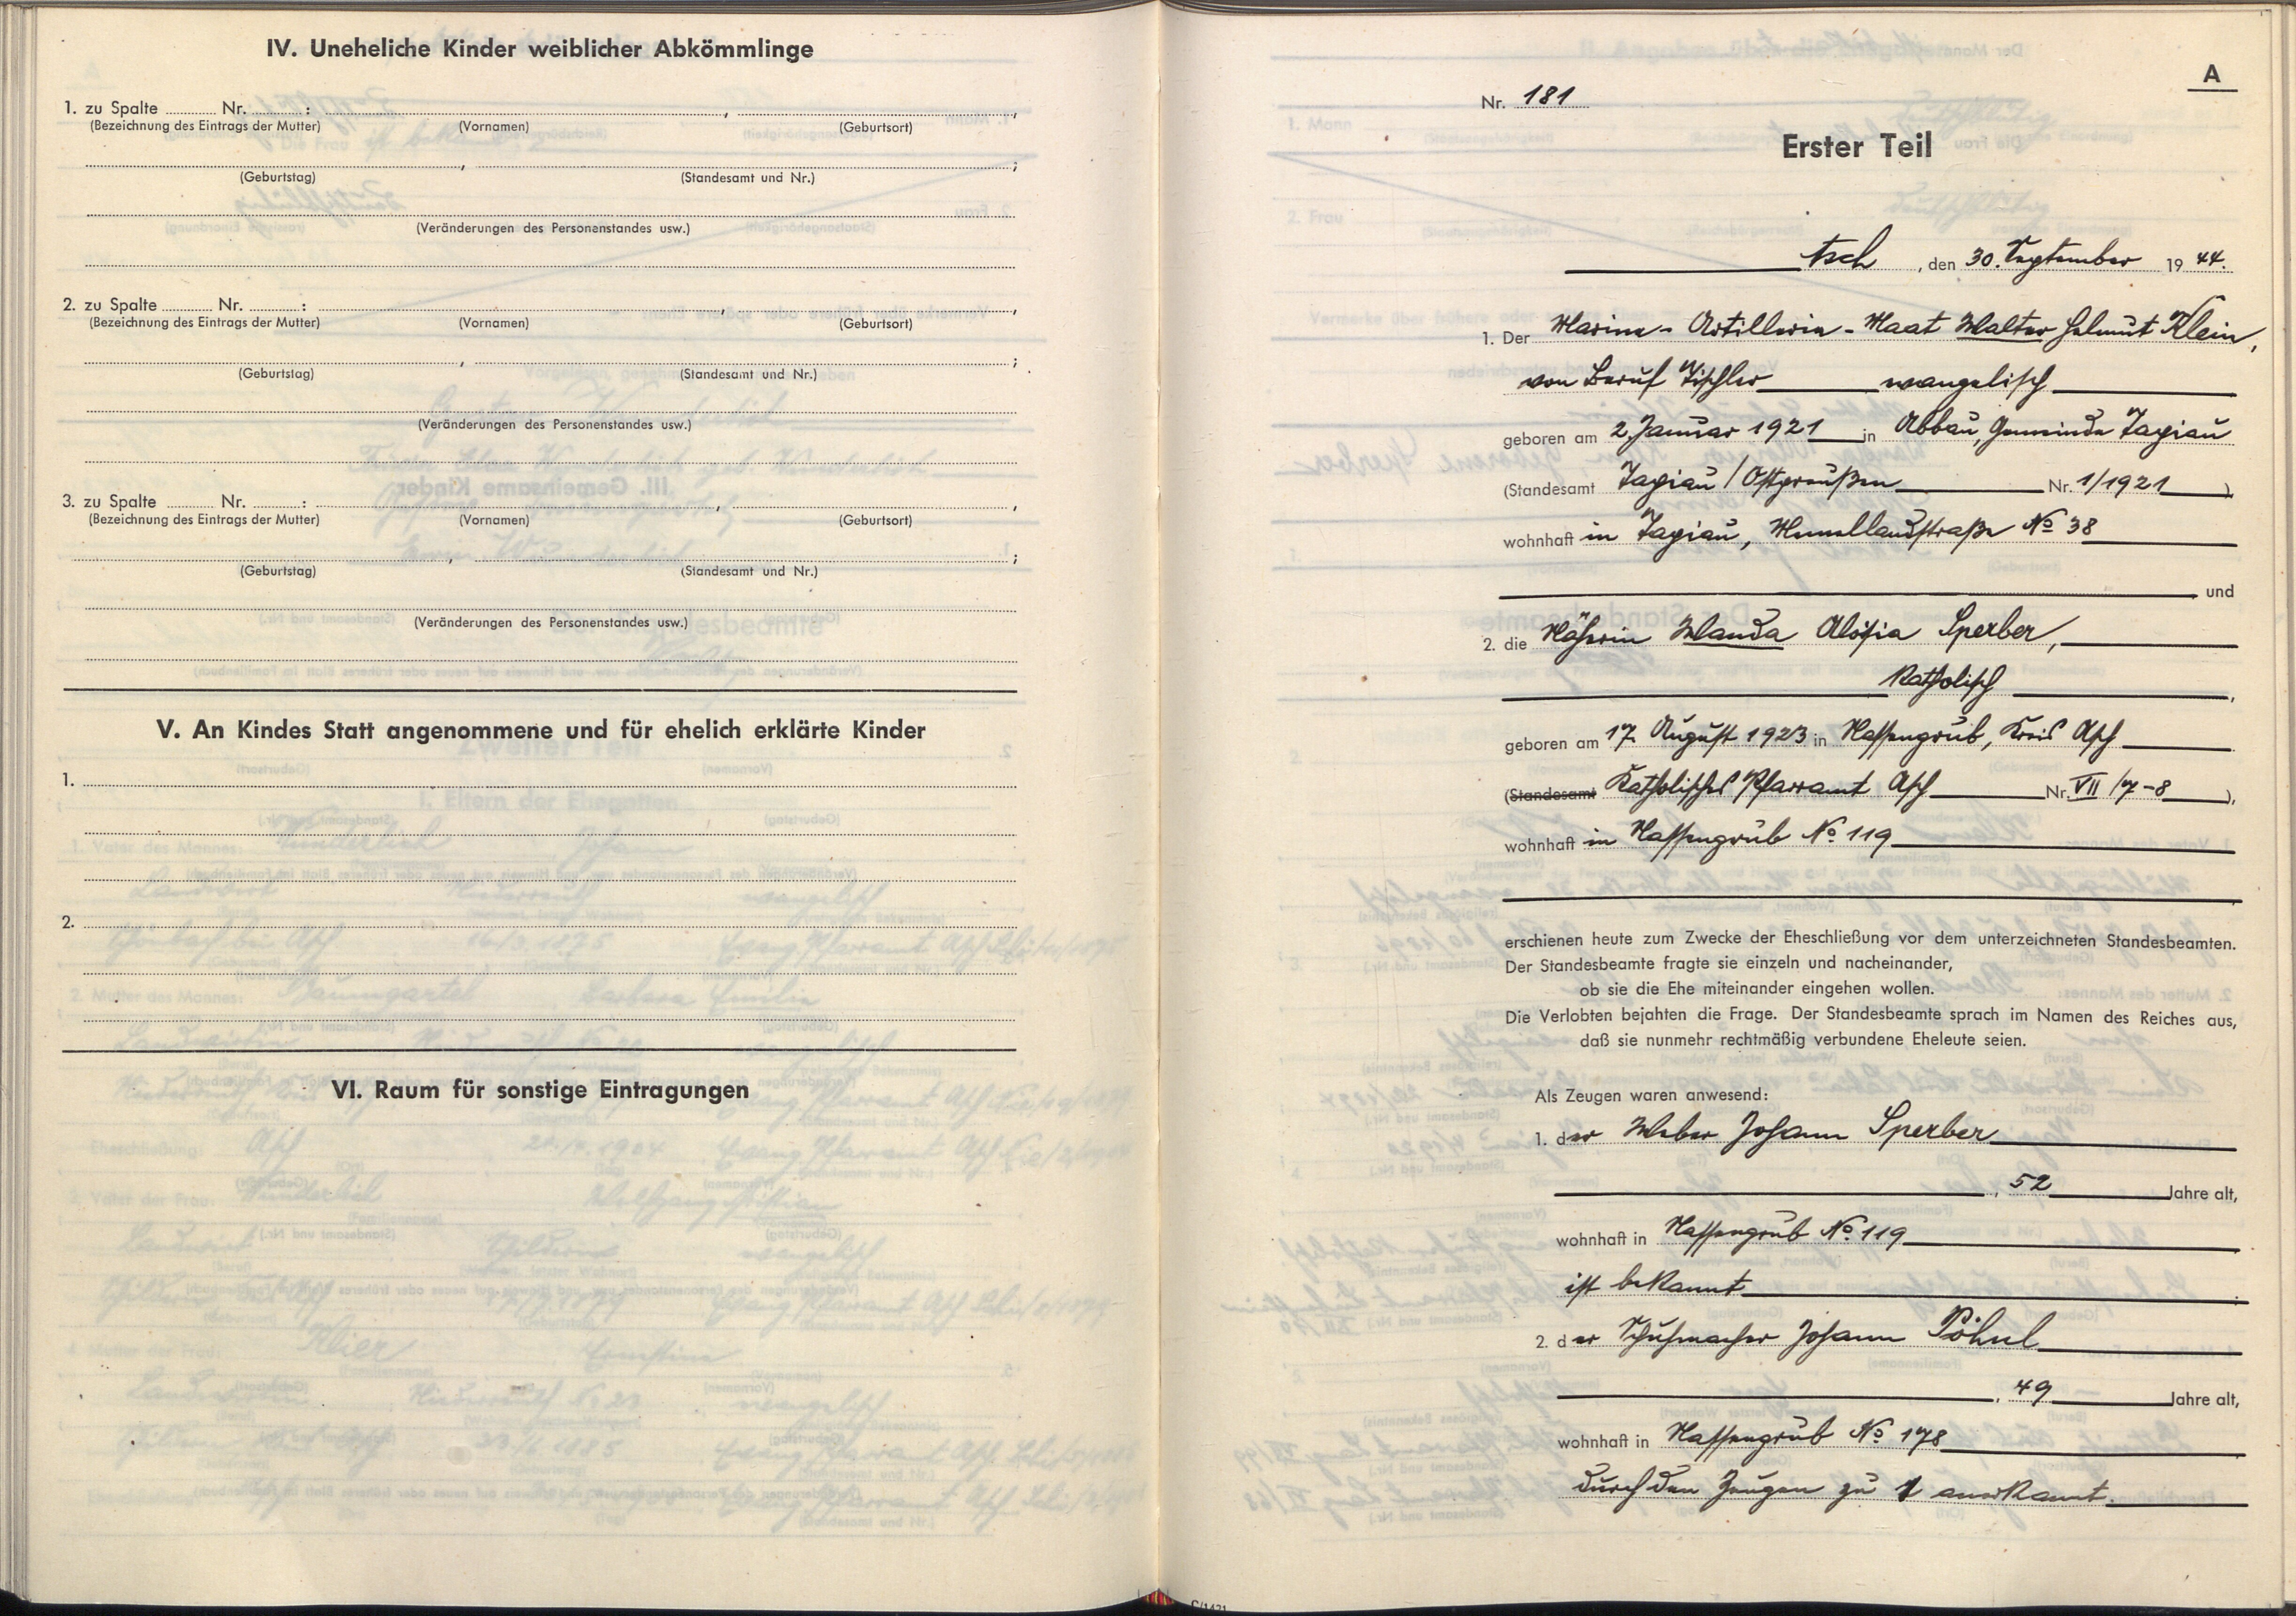 IV. Uneheliche Kinder weiblicher Abkömmlinge
1. zu Spalte ........ Nr. ........ :
(Bezeichnung des Eintrags der Mutter) (Vornamen) (Geburtsort)
(Geburtstag) (Standesamt und Nr.)
(Veränderungen des Personenstandes usw.)
2. zu Spalte ........ Nr. ........ :
(Bezeichnung des Eintrags der Mutter) (Vornamen) (Geburtsort)
(Geburtstag) (Standesamt und Nr.)
(Veränderungen des Personenstandes usw.)
3. zu Spalte ........ Nr. ........ :
(Bezeichnung des Eintrags der Mutter) (Vornamen) (Geburtsort)
(Geburtstag) (Standesamt und Nr.)
(Veränderungen des Personenstandes usw.)
V. An Kindes Statt angenommene und für ehelich erklärte Kinder
1.
2.
VI. Raum für sonstige Eintragungen
A
Nr. 181
Erster Teil
Asch, den 30. September 1944.
1. Der Marine-Artillerie-Maat Walter Helmut Klein,
von Beruf Tischler evangelisch
geboren am 2. Januar 1921 in Abbau, Gemeinde Tapiau
(Standesamt Tapiau / Ostpreußen Nr. 1/1921)
wohnhaft in Tapiau, Memellandstraße No 38
und
2. die Näherin Wanda Aloisia Sperber,
Katholisch,
geboren am 17. August 1923 in Hassengrub, Kreis Asch
(Standesamt Katholisches Pfarramt Asch Nr. VII/7-8),
wohnhaft in Hassengrub No 119
erschienen heute zum Zwecke der Eheschließung vor dem unterzeichneten Standesbeamten.
Der Standesbeamte fragte sie einzeln und nacheinander,
ob sie die Ehe miteinander eingehen wollen.
Die Verlobten bejahten die Frage. Der Standesbeamte sprach im Namen des Reiches aus,
daß sie nunmehr rechtmäßig verbundene Eheleute seien.
Als Zeugen waren anwesend:
1. der Weber Johann Sperber
, 52 Jahre alt,
wohnhaft in Hassengrub No 119
ist bekannt
2. der Schuhmacher Johann Pöhnl
, 49 Jahre alt,
wohnhaft in Hassengrub No 178
durch den Zeugen zu 1 anerkannt.